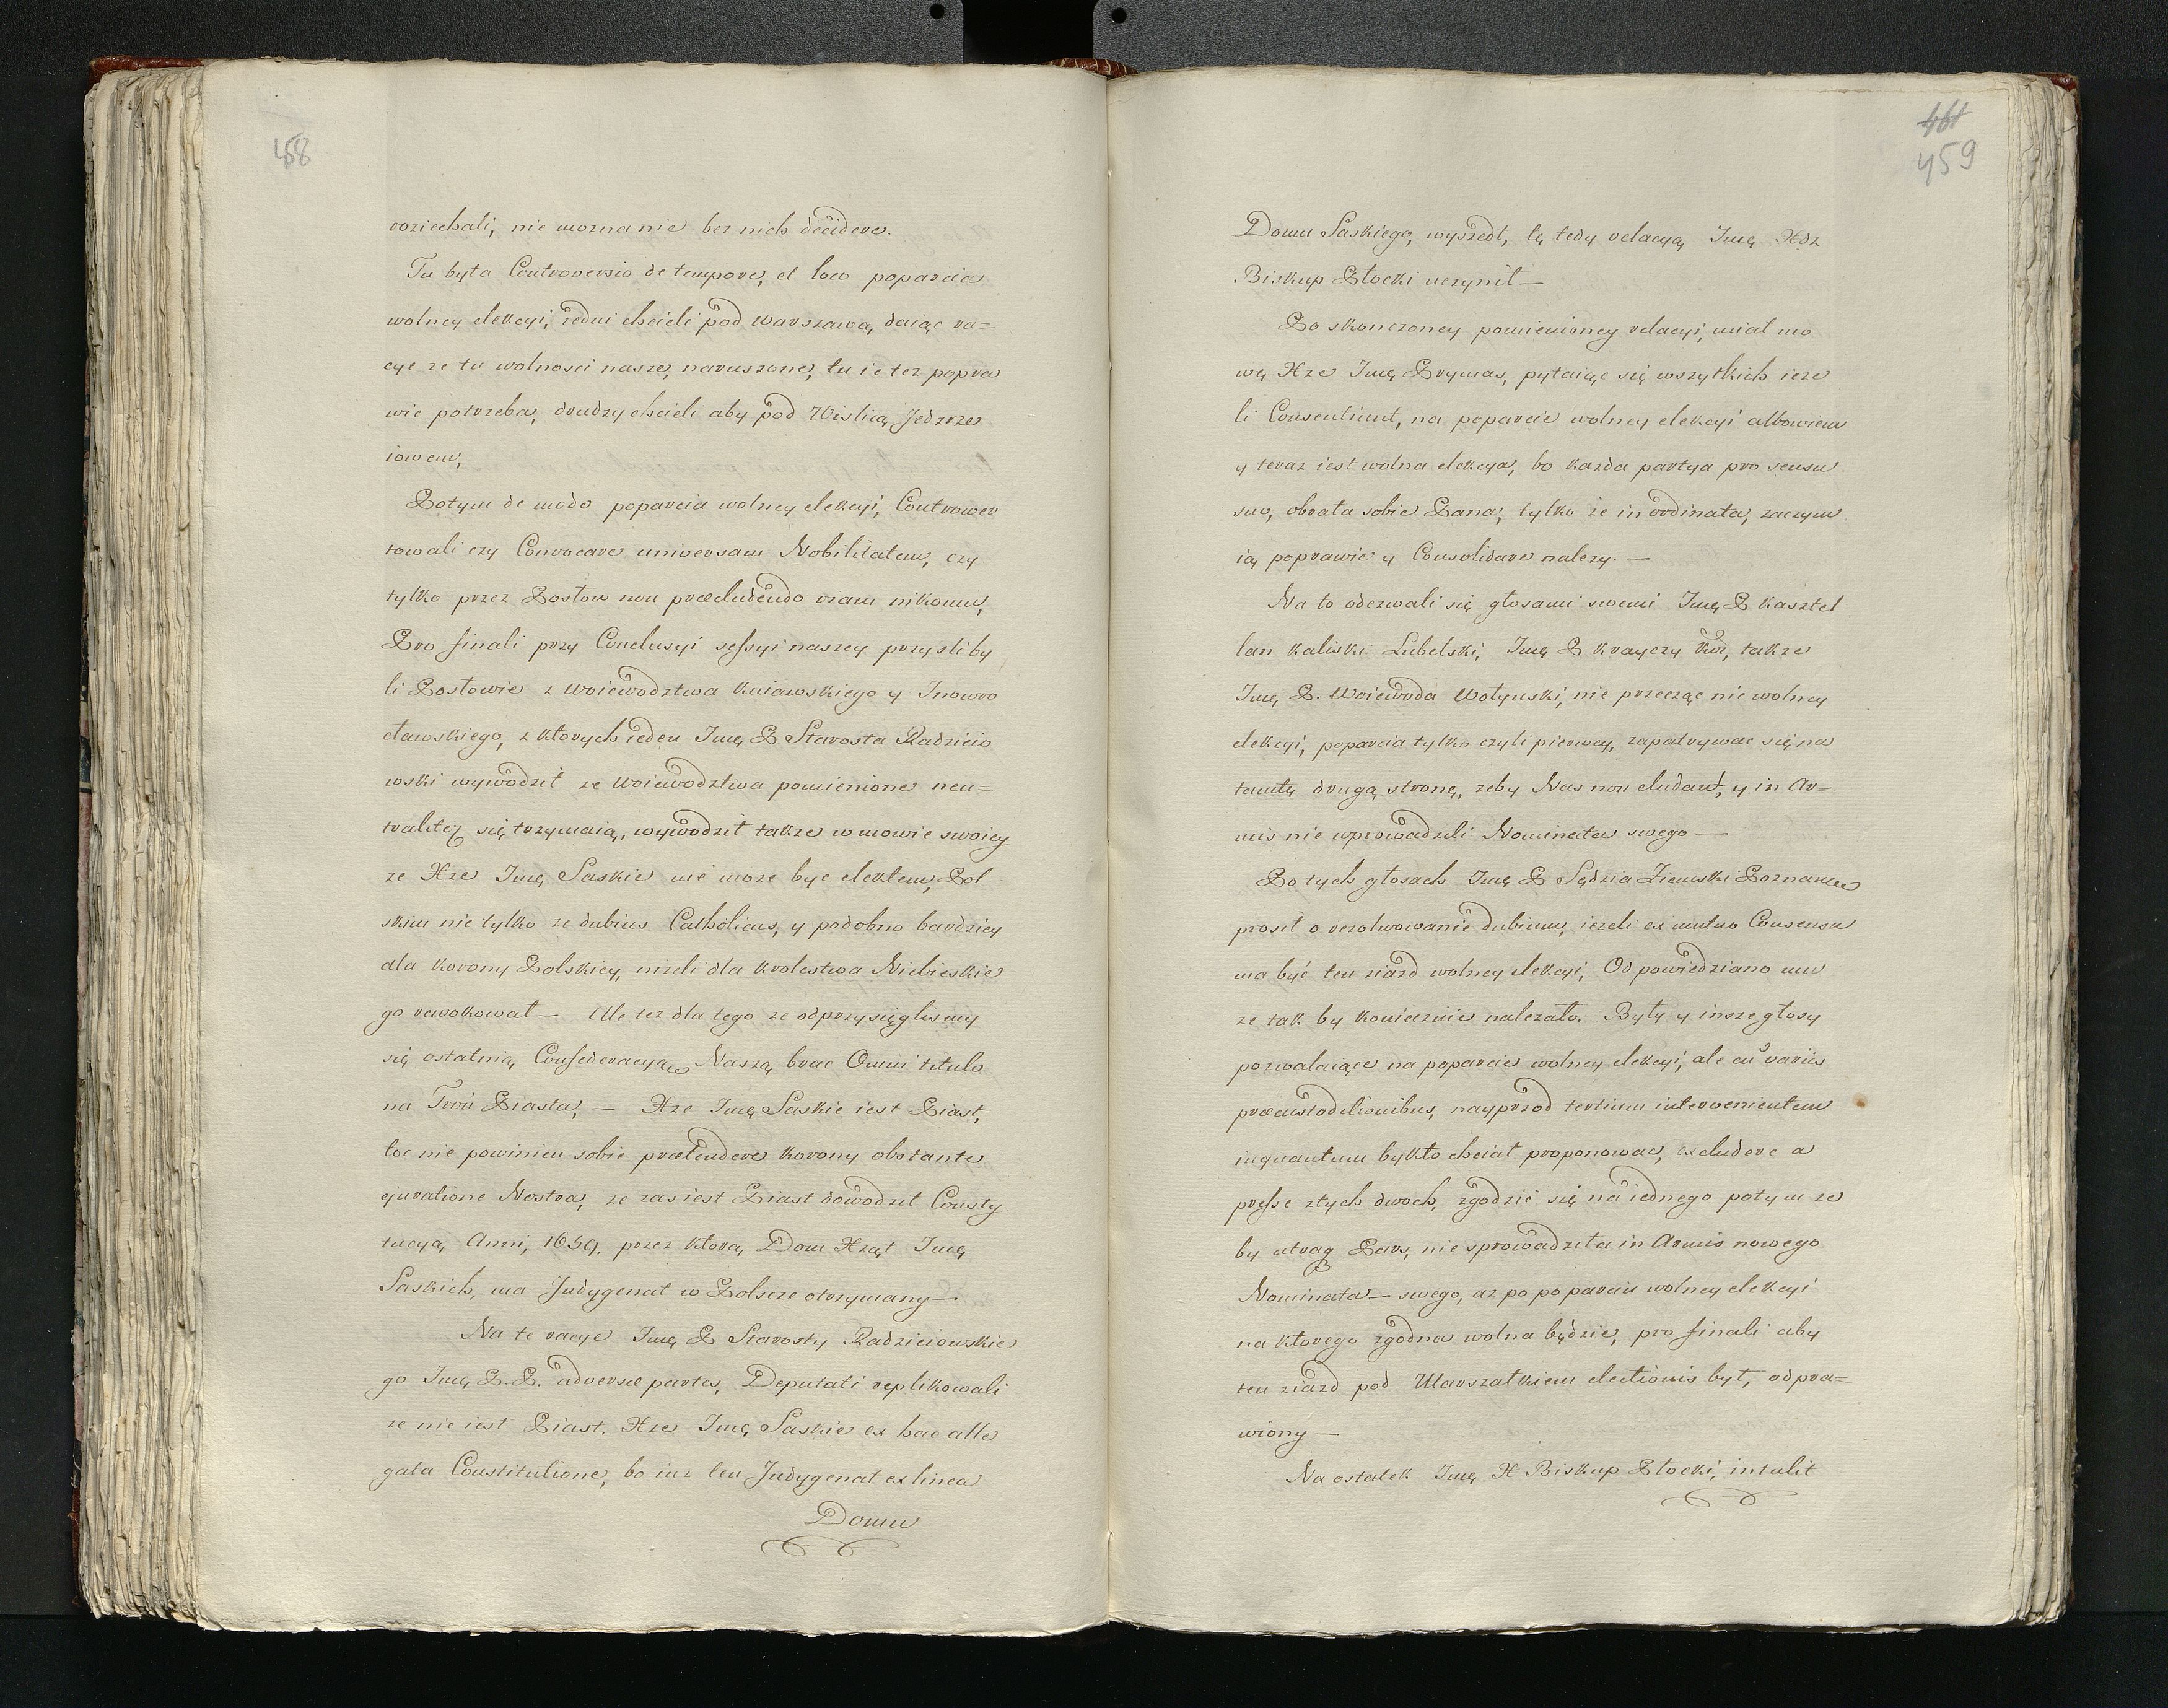 458
roziechali, nie mozna nic bez nich decidere.
Tu była Controversio de tempore, et loco poparcia
wolney elekcyi, iedni chcieli pod Warszawą, daiąc ra=
cye ze tu wolnosci nasze, naruszone, tu ie tez popra
wic potrzeba, drudzy chcieli aby pod Wislicą Jedrze
iowem,
Potym de modo poparcia wolney elekcyi, Contrower
towali czy Convocare universam Nobilitatem, czy
tylko przez Posłow non præcludendo viam nikomu,
Pro finali przy Conclusyi sessyi naszey przyszli by
li Posłowie z Woiewodztwa Kuiawskiego y Inowro
cławskiego, z ktorych ieden Jmę P Starosta Radzieio
wski wywodził ze Woiewodztwa pomienione neu=
tralitez się trzymaią, wywodził takze w mowie swoiey
ze Xze Jmę Saskie nie moze byc elektem, Pol
skim nie tylko ze dubius Catholicus, y podobno bardziey
dla Korony Polskiey, nizeli dla Krolestwa Niebieskie
go rewokował — Ale tez dla tego ze odprzysięglismy
się ostatnią Confederacyą Naszą brac Omni titulo
na Tron Piasta, — Xze Jmę Saskie iest Piast,
toc nie powinien sobie prætendere Korony obstante
ejuratione Nostra, ze zas iest Piast dowodził Consty
tucyą Anni, 1659. przez ktorą Dom Xząt Jmę
Saskich, ma Jndygenat w Polscze otrzymany —
Na te racye Jmę P Starosty Radzieiowskie
go Jmę P. P. adversæ partes, Deputati replikowali
ze nie iest Piast. Xze Jmę Saskie ex hac alle
gata Constitutione, bo iuz ten Jndygenat ex linea
Domu
461
459
Domu Saskiego, wyszedł, tę tedy relacyą Jmę Xdz
Biskup Płocki uczynił —
Po skonczoney pomienioney relacyi, miał mo
wę Xze Jmę Prymas, pytaiąc się wszytkich ieze
li Consentiunt, na poparcie wolney elekcyi albowiem
y teraz iest wolna elekcya, bo kazda partya pro sensu
suo, obrała sobie Pana; tylko ze inordinata, zaczym
ią poprawic y Consolidare nalezy. —
Na to odezwali się głosami swemi Jmę P Kasztel
lan Kaliski Lubelski, Jmę P Krayczy Kor, takze
Jmę P. Woiewoda Wołynski, nie przecząc nic wolney
elekcyi, poparcia tylko czyli pierwey, zapatrywac się na
tamtę drugą stronę, zeby Nas non eludant, y in Ar=
mis nie wprowadzili Nominata swego —
Po tych głosach Jmę P Sędzia Ziemski Poznanski
prosił o rezolwowanie dubium, iezeli ex mutuo Consensu
ma być ten ziazd wolney elekcyi, Odpowiedziano mu
ze tak by koniecznie nalezało. Były y insze głosy
pozwalaiące na poparcie wolney elekcyi, ale cu variis
præcustoditionibus, nayprzod tertium intervenientem
inquantum by kto chciał proponowac, excludere a
presse z tych dwoch, zgodzic się na iednego potym ze
by utraq Pars, nie sprowadziła in Armis nowego
Nominata — swego, az po poparciu wolney elekcyi
na ktorego zgodna wolna będzie, pro finali aby
ten ziazd pod Marszałkiem electionis był, odpra=
wiony —
Na ostatek Jmę X Biskup Płocki, intulit